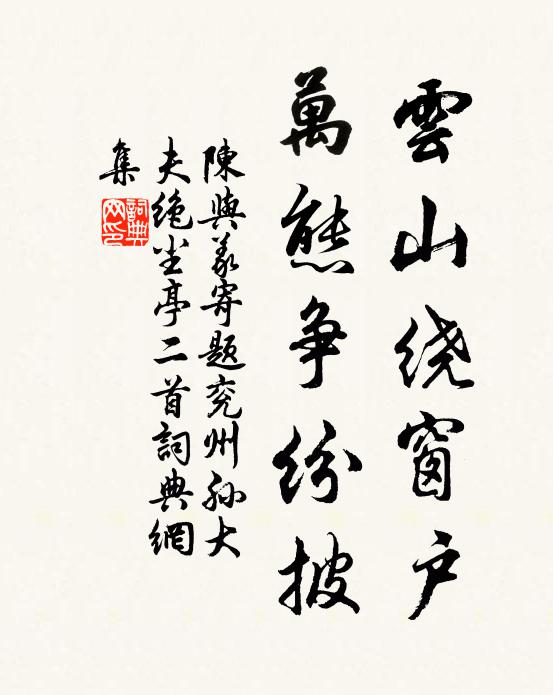 雲山绕窗户
萬態争纷披
陳與義寄題兖州孙大
夫绝尘亭二首詞典網
集
詞典網印